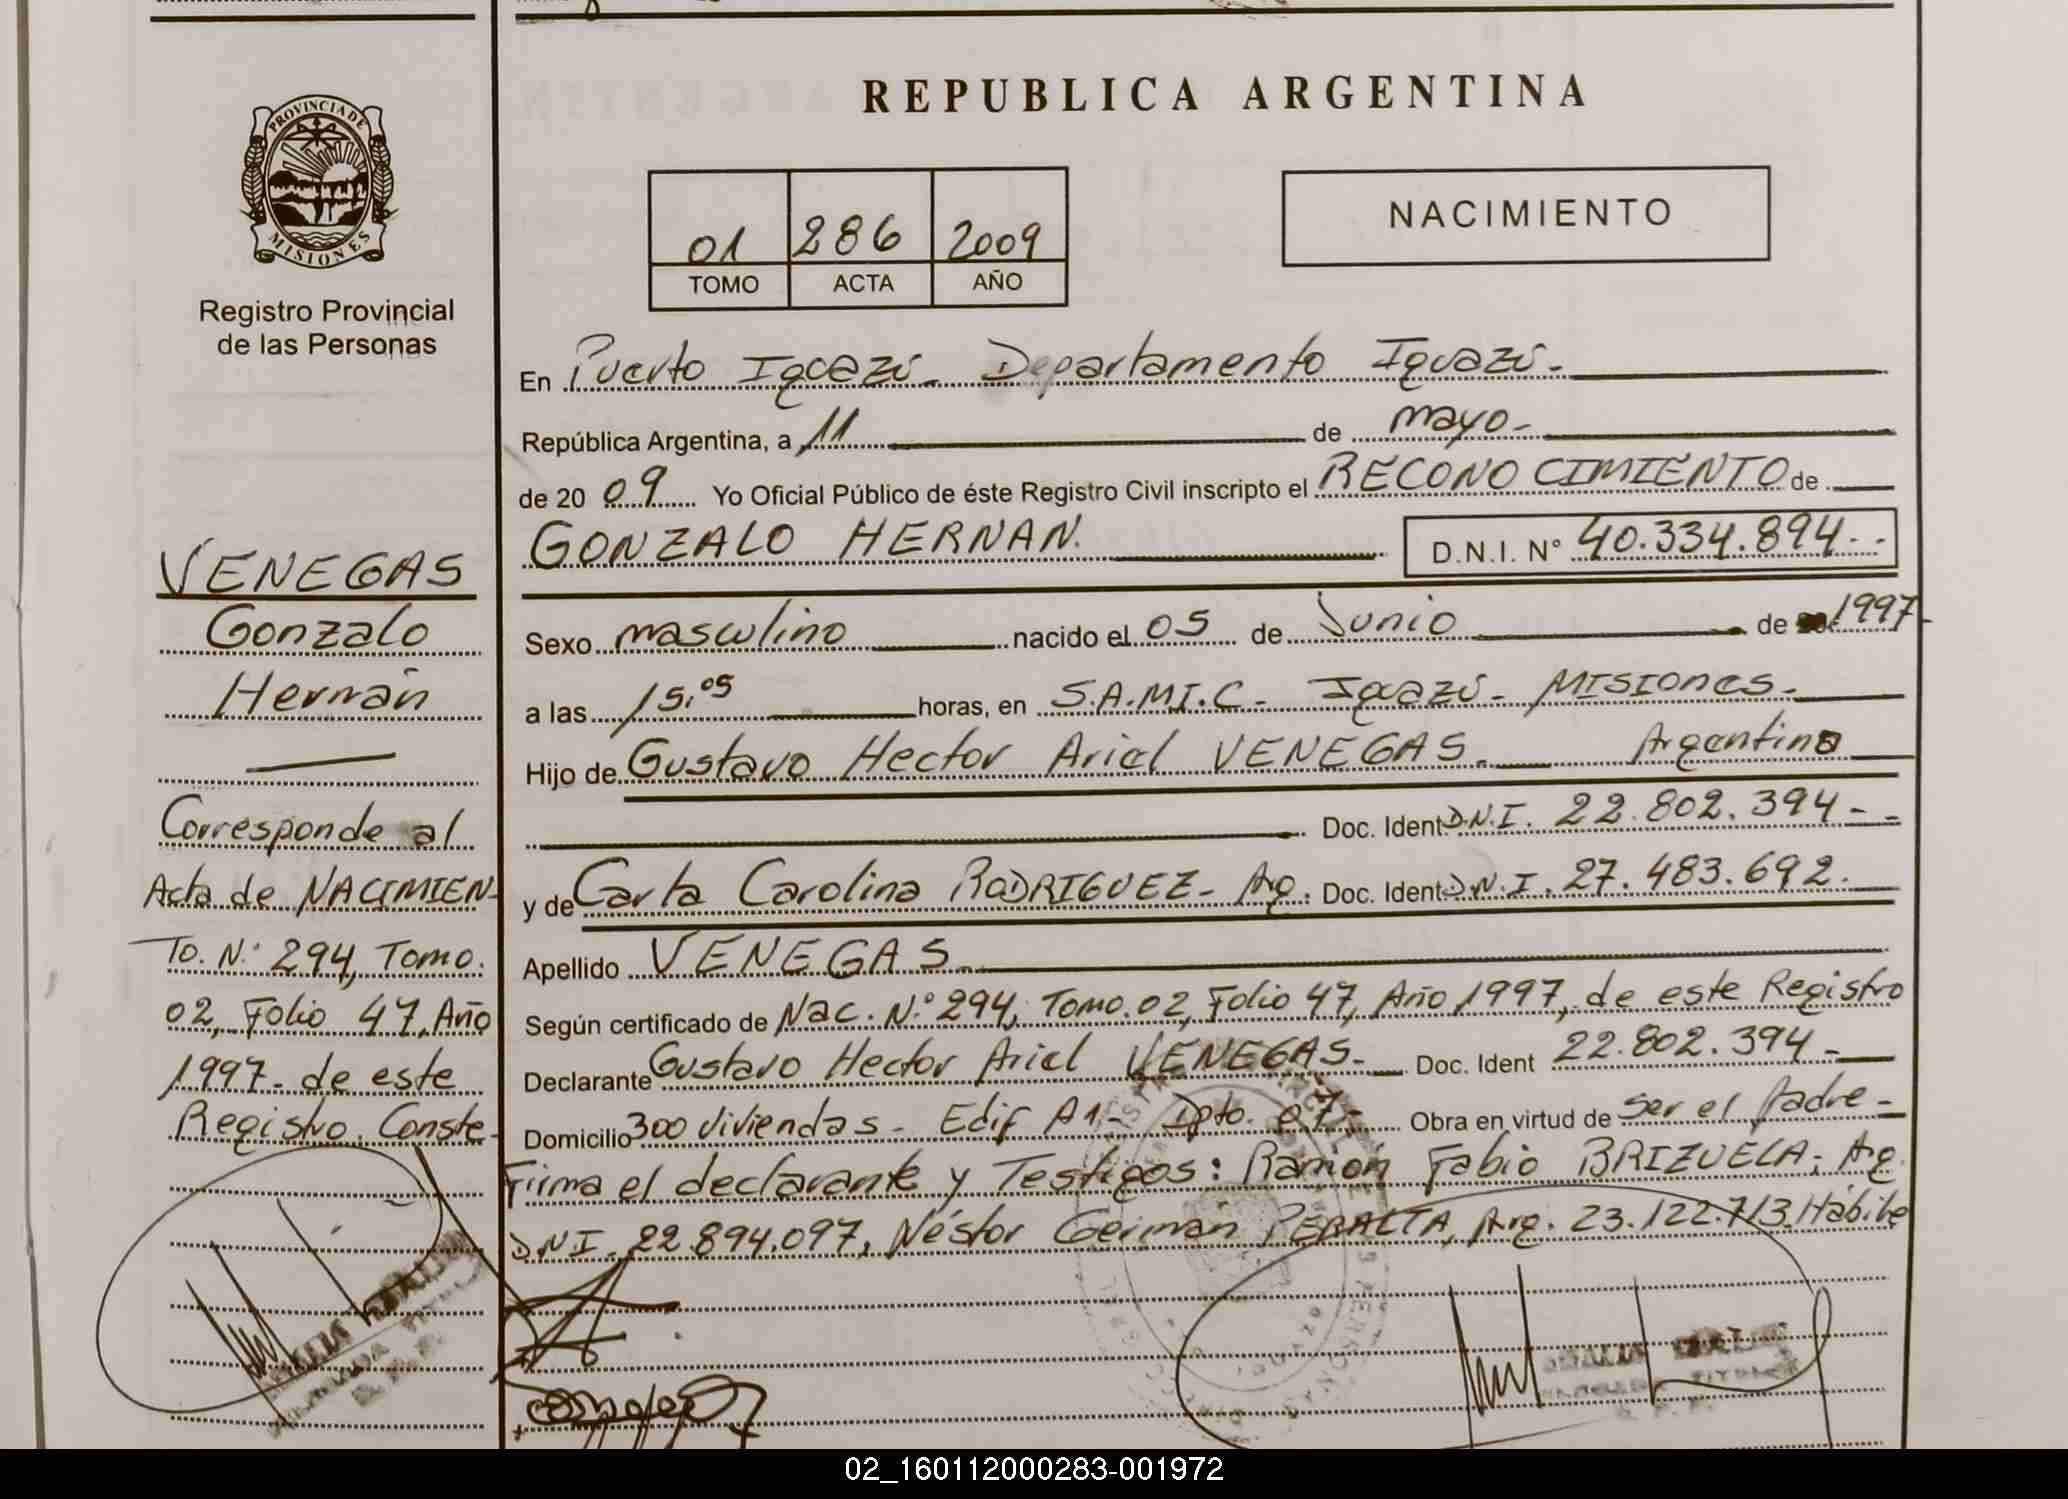 PROVINCIA DE
MISIONES
Registro Provincial
de las Personas
VENEGAS
Gonzalo
Hernán
Corresponde al
Acta de NACIMIEN-
To. N.º 294, Tomo.
02, Folio 47, Año
1997- de este
Registro. Conste-
REPUBLICA ARGENTINA
01 286 2009
TOMO ACTA AÑO
NACIMIENTO
En Puerto Iguazú- Departamento Iguazú-
República Argentina, a 11 de mayo-
de 20 09 Yo Oficial Público de éste Registro Civil inscripto el RECONOCIMIENTO de
GONZALO HERNAN. D.N.I. Nº 40.334.894--
Sexo masculino nacido el 05 de Junio de 1997-
a las 15,05 horas, en S.A.M.I.C- Iguazú- MISIONES-
Hijo de Gustavo Hector Ariel VENEGAS- Argentino
Doc. Ident D.N.I. 22.802.394--
y de Carla Carolina RODRIGUEZ- Arg. Doc. Ident D.N.I. 27.483.692.
Apellido VENEGAS-
Según certificado de Nac. N.º 294, Tomo. 02, Folio 47, Año 1997, de este Registro
Declarante Gustavo Hector Ariel VENEGAS- Doc. Ident 22.802.394-
Domicilio 300 viviendas- Edif A1- Dpto. 07- Obra en virtud de ser el padre-
Firma el declarante y Testigos: Ramón Fabio BRIZUELA, Arg.
DNI. 22.894.097, Néstor Germán PERALTA, Arg. 23.122.713. Hábile
02_160112000283-001972